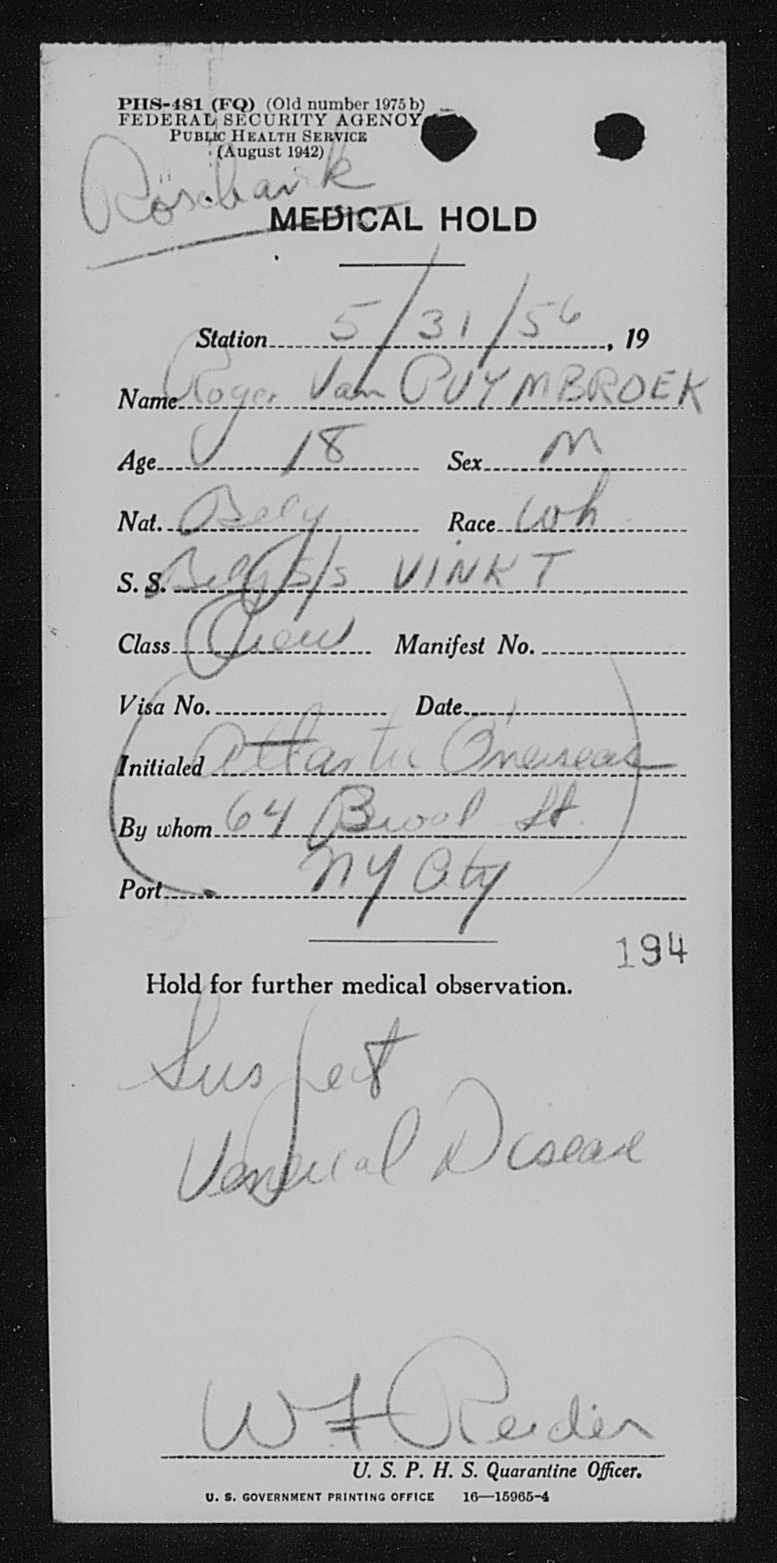 PHS-481 (FQ) (Old number 1975b)
FEDERAL SECURITY AGENCY
PUBLIC HEALTH SERVICE
(August 1942)
Rosebank
MEDICAL HOLD
Station 5/31/56, 19
Name Roger Van PUYMBROEK
Age 18 Sex M
Nat. Belg Race Wh
S. S. Belg S/S VINKT
Class Crew Manifest No.
Visa No. Date
Initialed Atlantic Overseas
By whom 64 Broad St.
Port NY City
194
Hold for further medical observation.
Suspect
Venereal Disease
W F Reeder
U. S. P. H. S. Quarantine Officer.
U. S. GOVERNMENT PRINTING OFFICE 16—15965-4